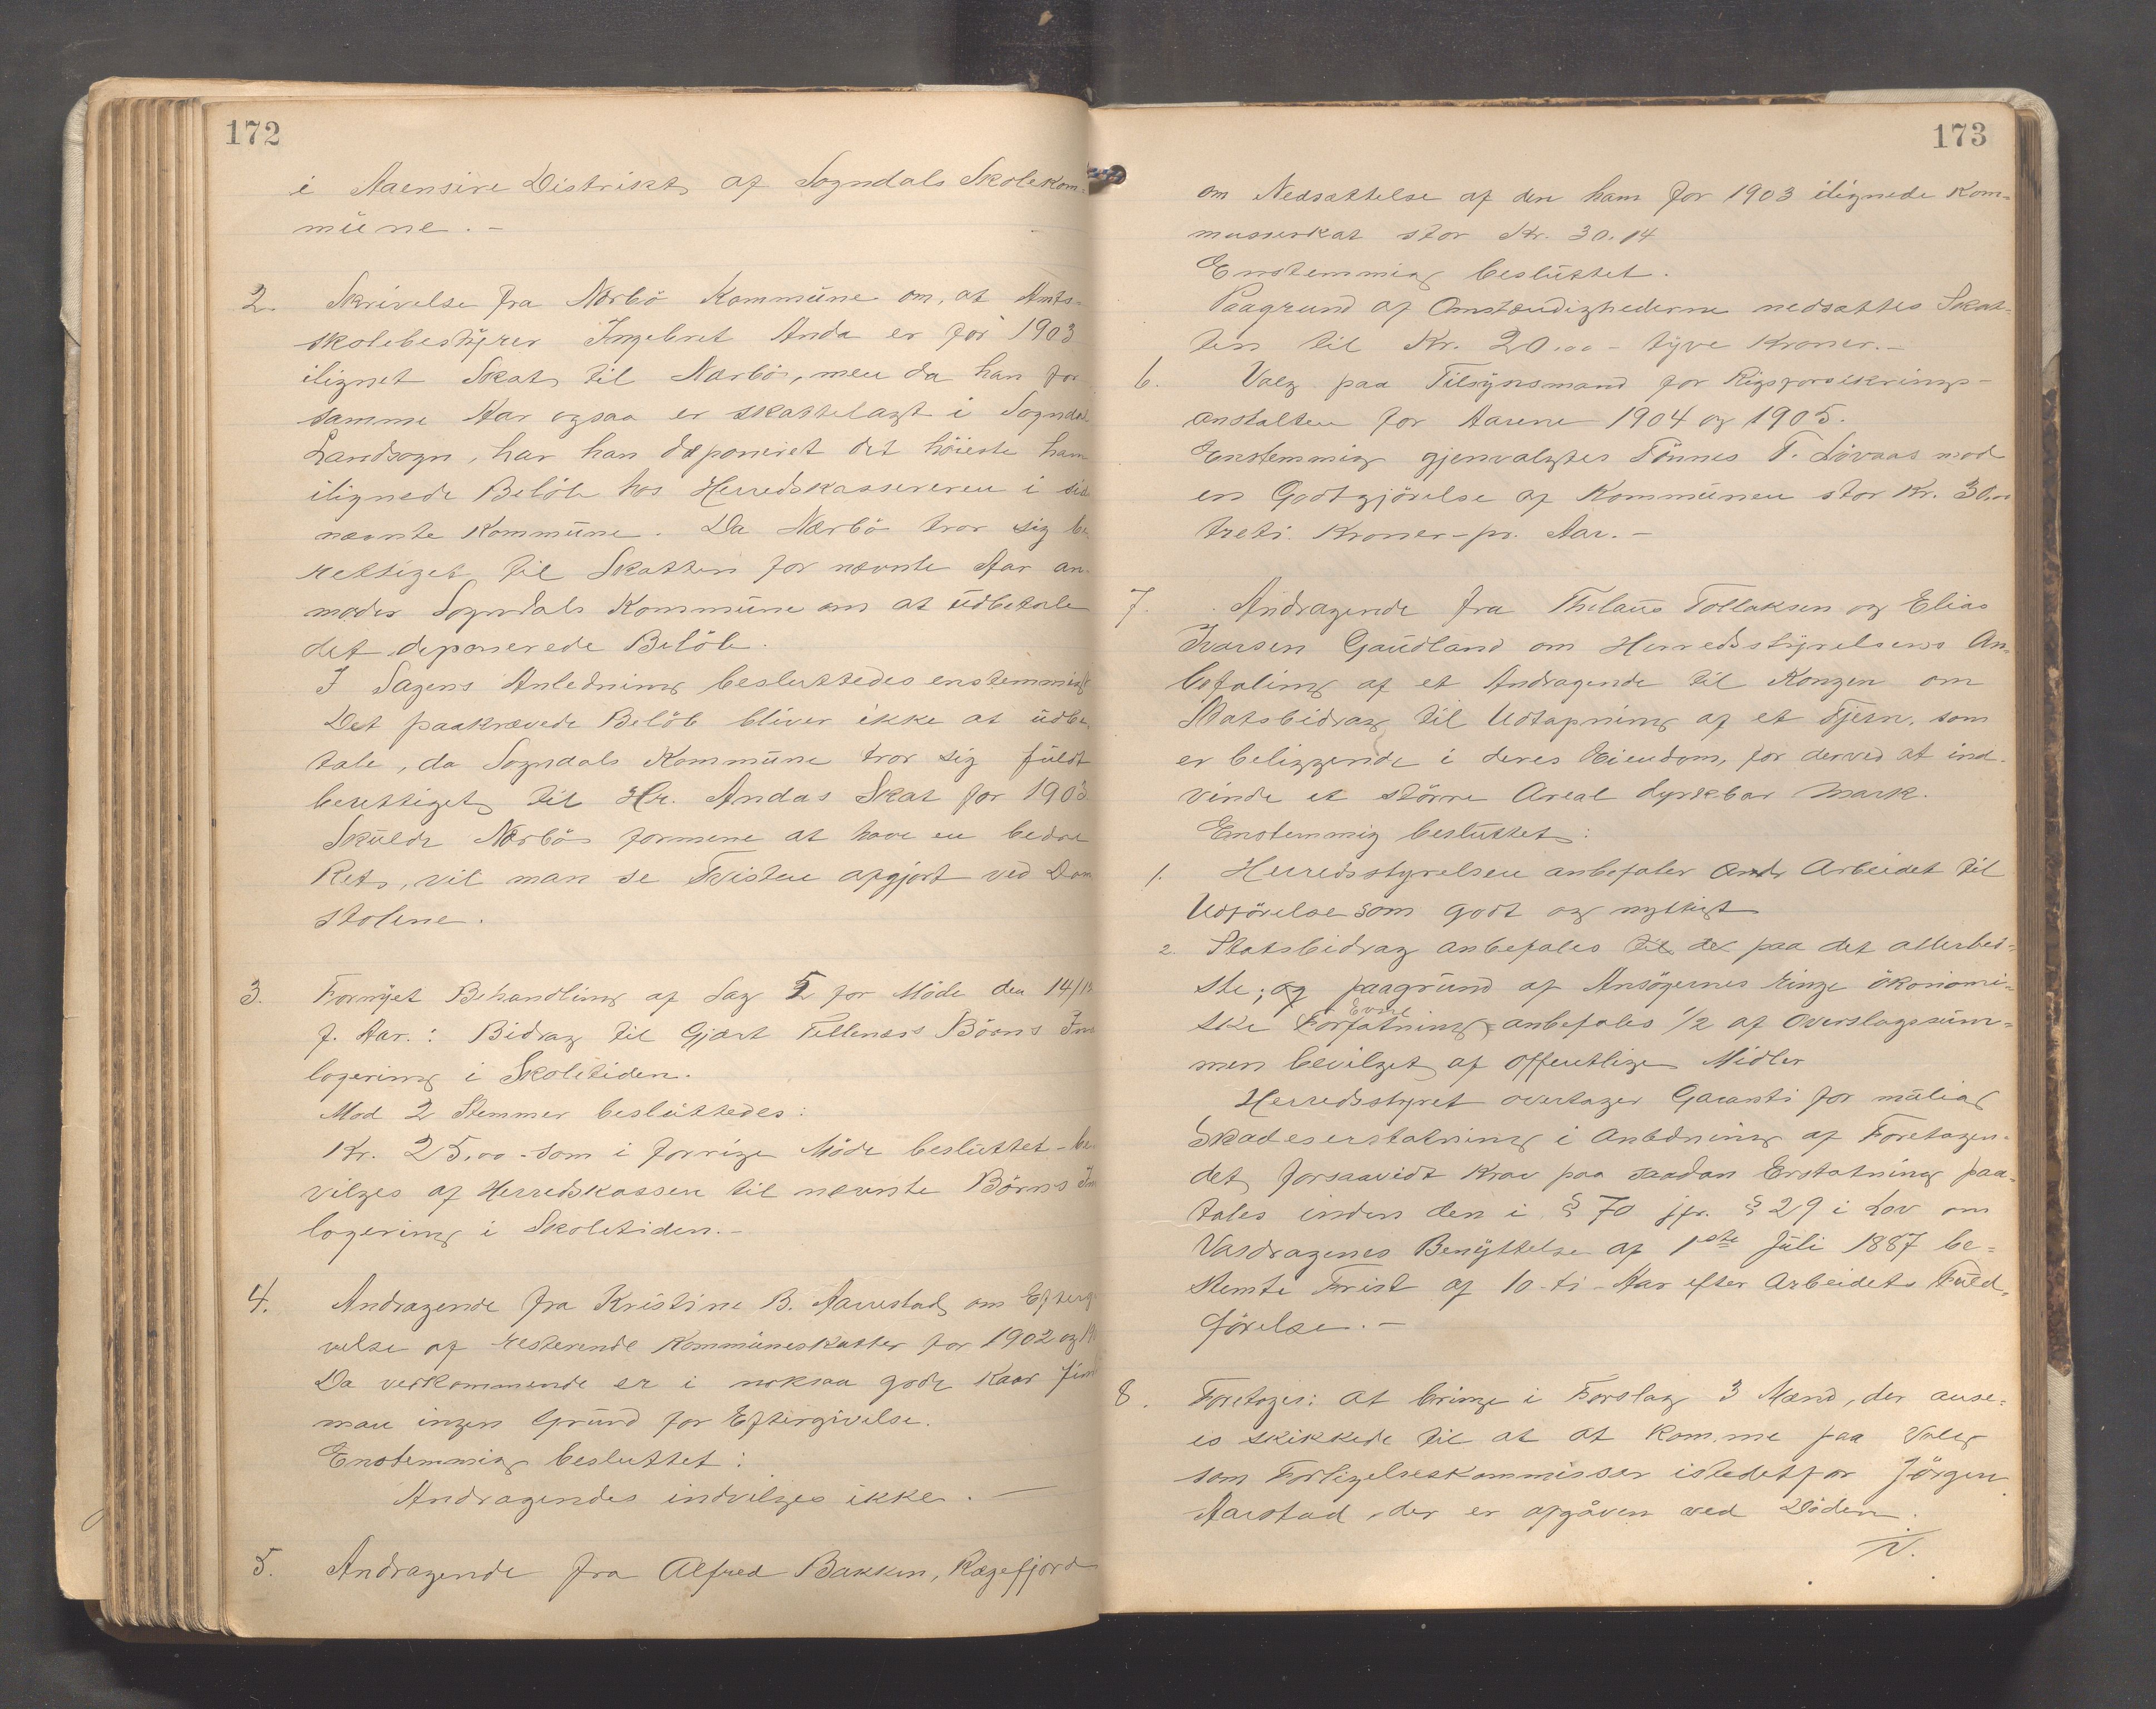 172
i Aaensire Distrikt af Sogndals Skolekom-
müne.-
2. Skrivelse fra Nærbö Kommüne om, at Amts-
skolebestÿrer Ingebret Anda er for 1903
ilignet Skat til Nærbö, men da han for
samme Aar ogsaa er skattelagt i Sogndal
Landsogn, har han deponeret det höieste ham
ilignede Belöb hos Herredskassereren i sid
nævnte Kommüne. Da Nærbö tror sig be
rettiget til Skatten for nævnte Aar an-
moder Sogndals Kommüne om at üdbetale
det deponerede Belöb.
I Sagens Anledning besluttedes enstemmig
Det paakrævede Belöb bliver ikke at üdbe-
tale, da Sogndals Kommüne tror sig füldt
berettiget til Hr. Andas Skat for 1903
Skülde Nærbö formene at have en bedre
Ret, vil man se Tvisten afgjort ved Dom
stolene.
3. Fornÿet Behandling af Sag 5 for Möde den 14/12
f. Aar.: Bidrag til Gjært Fellenæs Börns In
logering i Skoletiden.
Mod 2 Stemmer beslüttedes:
Kr. 25,00 - som i forrige Möde beslüttet - be-
vilges af Herredskassen til nævnte Börns In
logering i Skoletiden.-
4. Andragende fra Kristine B. Aarrestad om Efterg
velse af resterende Kommüneskatter for 1902 og 19
Da vedkommende er i noksaa gode Kaar fin
man ingen Gründ for Eftergivelse.
Enstemmig besluttet:
Andragendes indvilges ikke. —
5. Andragende fra Alfred Bakken, Rægefjord
173
om Nedsættelse af den ham for 1903 ilignede Kom-
muneskat stor Kr. 30.14
Enstemmig beslüttet.
Paagrund af Omstændighederne nedsattes Skat-
ten til Kr. 20.00 - tÿve Kroner.-
6. Valg paa Tilsÿnsmand for Rigsforsikrings-
anstalten for Aarene 1904 og 1905.
Enstemmig gjenvalgtes Tönnes T. Lövaas mod
en Godtgjörelse af Kommünen stor Kr. 30,00
treti Kroner - pr. Aar.-
7. Andragende fra Thelaüs Tollaksen og Elias
Ivarsen Gaüdland om Herredsstÿrelsens An-
befaling af et Andragende til Kongen om
Statsbidrag til Udtapning af et Tjern, som
er beliggende i deres Eiendom, for derved at ind-
vinde et större Areal dyrkbar Mark.
Enstemmig beslüttet:
1. Herredsstyrelsen anbefaler Arbeidet til
Udförelse som godt og nyttigt
2. Statsbidrag anbefales paa det allerbed-
ste; og paagründ af Ansögernes ringe ökonomi-
ske Forfatning Evne anbefales 1/2 af Overslagssüm-
men bevilget af offentlige Midler
Herredsstyret overtager Garanti for mülig
Skadeserstatning i Anledning af Foretagen-
det forsaavidt Krav paa saadan Erstatning paa-
tales inden den i § 70 jfr. § 29 i Lov om
Vasdragenes Benÿttelse af 1ste Jüli 1887 be-
stemte Frist af 10 - ti - Aar efter Arbeidets Füld-
förelse.-
8. Foretoges: At bringe i Forslag 3 Mænd, der anse-
es skikkede til at at komme paa Valg
som Forligelseskommissær istedetfor Jörgen
Aarstad, der er afgåven ved Döden.